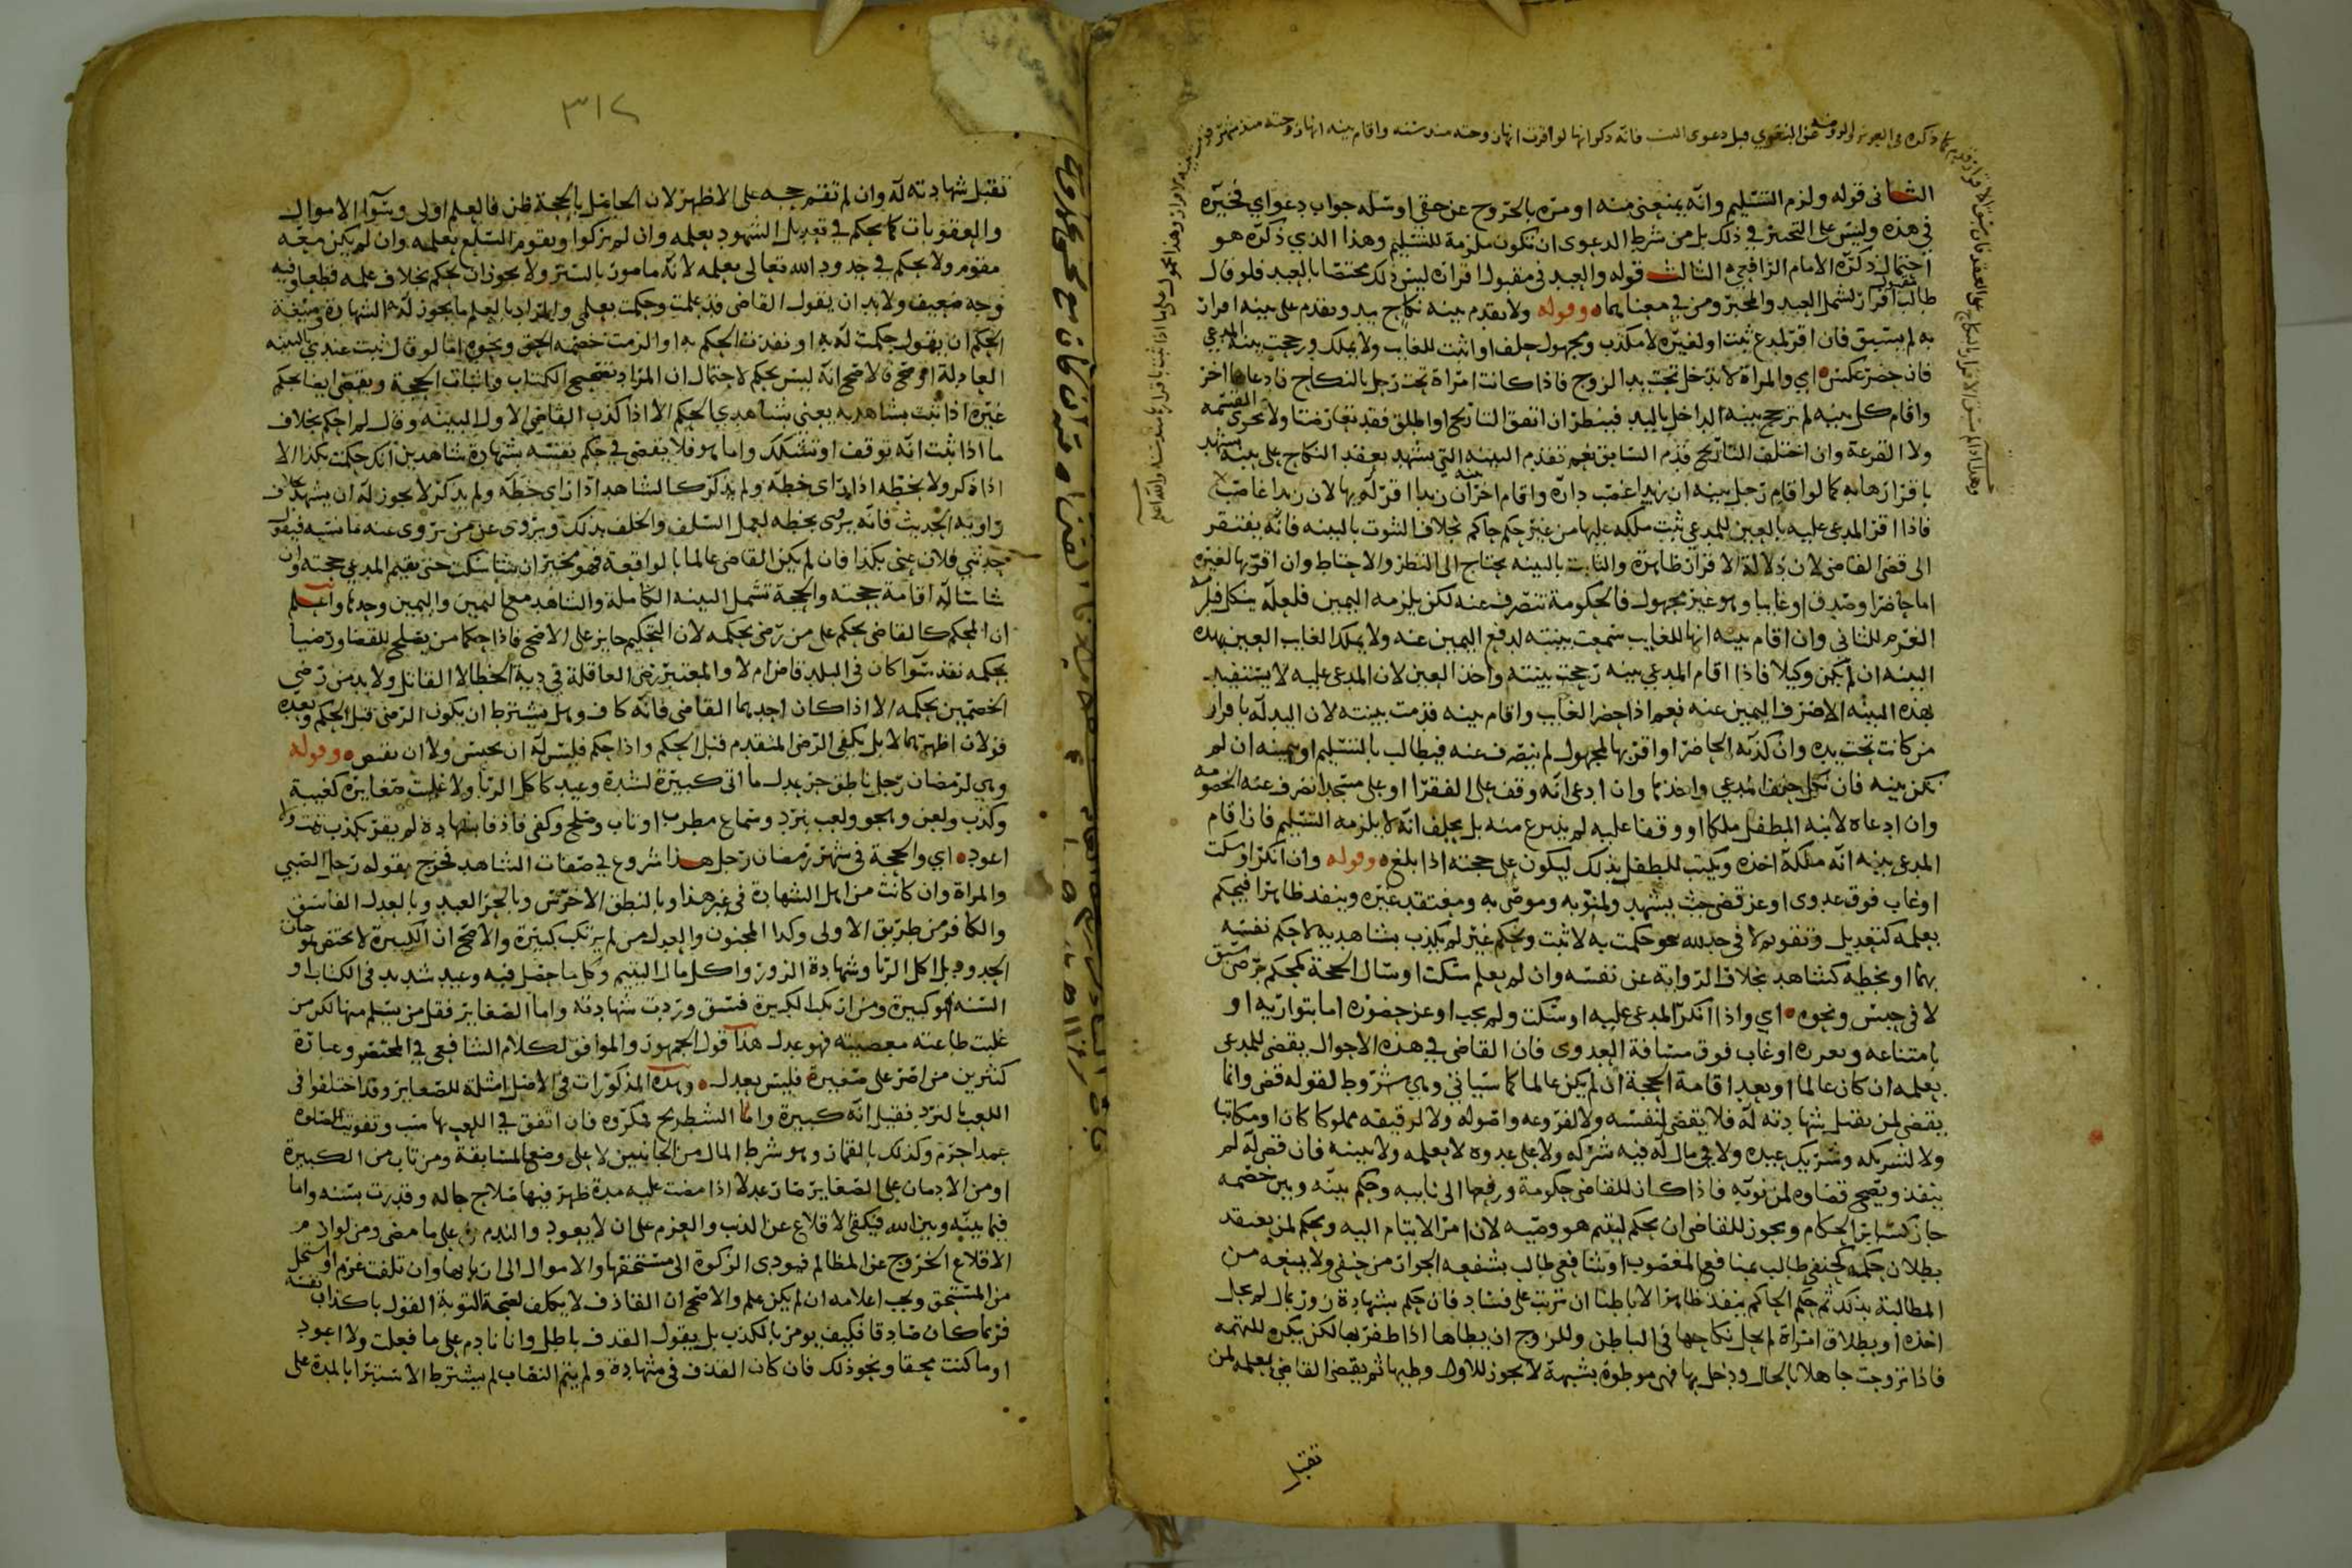 الثاني قوله ولزم التسليم وانه يمنعني منه او مره بالخروج عن حقي او سله جواب دعواي فخيره
في هذه وليس على التخيير في ذلك بل من شرط الدعوى ان تكون ملزمة للتسليم وهذا الذي ذكره هو
احتمال ذكره الامام الرافعي الثالث قوله والعبد في مقبول اقراره ليس ذلك مختصا بالعبد فلو قال
طالب مقبول اقرار لشمل العبد والمخبر ومن في معناهما وقوله ولا تقدم بينه نكاح بيد وتقدم على بينه اقرار
به لم يسبق فان اقر لمدع ثبت او لغيره لا مكذب ومجهول حلف او اثبت للغايب ولا يملك ورجحت بينه المدعي
فان حضر عكس اي والمراة لا تدخل تحت يد الزوج فاذا كانت امراة تحت رجل بالنكاح فادعاها اخر
واقام كل بينه لم ترجح بينه الداخل باليد فينظر ان اتفق التاريخ او اطلق فقد تعارضتا ولا تجري القسمه
ولا القرعة وان اختلف التاريخ قدم السابق نعم تقدم البينه التي تشهد بعقد النكاح على بينه تشهد
باقرارها به كما لو اقام رجل بينه ان زيدا غصب داره واقام اخر بينه ان زيدا اقر له بها لان زيدا غاصب
فاذا اقر المدعى عليه بالعين للمدعي ثبت ملكه عليها من غير حكم حاكم بخلاف الثبوت بالبينه فانه يفتقر
الى قضى القاضي لان دلالة الاقرار ظاهرة والثابت بالبينه يحتاج الى النظر والاحتياط وان اقر بها لغيره
اما حاضرا وصدق او غايبا وهو غير مجهول فالحكومة تنصرف عنه لكن يلزمه اليمين فلعله ينكل
الغرم للثاني وان اقام بينه انها للغايب سمعت بينته لدفع اليمين عنه ولا يملك الغايب العين بهذه
البينه ان لم يكن وكيلا فاذا اقام المدعي بينه رجحت بينته واخذ العين لان المدعى عليه لا يستفيد
بهذه البينه الا صرف اليمين عنه نعم اذا حضر الغايب واقام بينه قدمت بينته لان اليد له باقرار
من كانت تحت يده وان كذبه الحاضر او اقر بها لمجهول لم تنصرف عنه فيطالب بالتسليم او يمينه ان لم
تكن بينه فان نكل حلف المدعي واخذها وان ادعى انه وقف على الفقرا او على مسجد انصرف عنه الخصومه
وان ادعاه لابنه الطفل ملكا او وقفا عليه لم ينزع منه بل يحلف انه لا يلزمه التسليم فان اقام
المدعي بينه انه ملكه اخذه ويكتب للطفل بذلك ليكون على حجته اذا بلغ وقوله وان انكر او سكت
او غاب فوق عدوى او عز قضى حيث يشهد ولمنوبه وموصى به ومعتقد غيره وينفذ ظاهرا فيحكم
بعلمه كتعديل وتقويم لا في حد لله نحو حكمت به لا ثبت وبحكم غير لم يكذب بشاهديه لا حكم نفسه
بهما او بخطه كشاهد بخلاف الرواية عن نفسه وان لم يعلم سكت او سال الحجة كمحكم رضى سبق
لا في حبس ونحوه اي واذا انكر المدعى عليه او سكت ولم يجب او عز حضوره اما بتواريه او
بامتناعه وتعزره او غاب فوق مسافة العدوى فان القاضي في هذه الاحوال يقضى للمدعى
بعلمه ان كان عالما او بعد اقامة الحجة ان لم يكن عالما كما سياتي وهي شروط لقوله قضى وانما
يقضي لمن تقبل شهادته له فلا يقضى لنفسه ولا لفروعه واصوله ولا لرقيقه مملوكا كان او مكاتبا
ولا لشريكه وشريك عبده ولا في مال له فيه شركه ولا على عدوه لا بعلمه ولا بينه فان قضى له لم
ينفذ ويصح قضاوه لمن نوبه فاذا كان للقاضي حكومة ورفعها الى نايبه وحكم بينه وبين خصمه
جاز كساير الحكام ويجوز للقاضي ان يحكم ليتيم هو وصيه لان امر الايتام اليه ويحكم لمن يعتقد
بطلان حكمه كحنفي طالب بمنافع المغصوب او شافعي طالب بشفعه الجوار من حنفي ولا يمنعه من
المطالبة بذلك ثم حكم الحاكم ينفذ ظاهرا لا باطنا ان ترتب على فساد فان حكم بشهادة زور بمال لم يحل
اخذه او بطلاق امراة لم يحل نكاحها في الباطن وللزوج ان يطاها اذا ظفر بها لكن يكره للتهمه
فاذا تزوجت جاهلا بالحال ودخل بها فهي موطوة بشبهة لا يجوز للاول وطيها ثم يقضي القاضي بعلمه لمن
تقبل
٣١٢
تقبل شهادته له وان لم تقم حجه على الاظهر لان الحاصل بالحجة ظن فالعلم اولى وسوا الاموال
والعقوبات كما يحكم في تعديل الشهود بعلمه وان لم يزكوا ويقوم السلع بعلمه وان لم يكن معه
مقوم ولا يحكم في حدود الله تعالى بعلمه لانه مامور بالستر ولا يجوز ان يحكم بخلاف علمه قطعا وفيه
وجه ضعيف ولا بد ان يقول القاضي قد علمت وحكمت بعلمي والمراد بالعلم ما يجوز له الشهادة وصيغة
الحكم ان يقول حكمت له به او نفذت الحكم به او الزمت خصمه الحق ونحوه اما لو قال ثبت عندي بالبينه
العادلة او صح فالاصح انه ليس بحكم لاحتمال ان المراد تصحيح الكتاب واثبات الحجة ويقضي ايضا بحكم
غيره اذا ثبت بشاهديه يعني شاهدي الحكم الا اذا كذب القاضي الاول البينه وقال لم احكم بخلاف
ما اذا ثبت انه توقف او تشكك واما هو فلا يقضي في حكم نفسه بشهادة شاهدين انك حكمت بكذا الا
اذا ذكر ولا بخطه اذا راى خطه ولم يذكر كالشاهد اذا راى خطه ولم يذكر لا يجوز له ان يشهد بخلاف
راويه الحديث فانه يروى بخطه لعمل السلف والخلف بذلك ويروى عن من يروى عنه ما نسيه فيقول
حدثني فلان عني بكذا فان لم يكن القاضي عالما بالواقعة فهو مخير ان شا سكت حتى يقيم المدعي حجته وان
شا ساله اقامة حجته والحجة تشمل البينه الكاملة والشاهد مع اليمين واليمين وحدها واعلم
ان المحكم كالقاضي يحكم على من رضى بحكمه لان التحكيم جايز على الاصح فاذا حكما من يصلح للقضا ورضيا
بحكمه نفذ سوا كان في البلد قاض ام لا والمعتبر رضى العاقلة في دية الخطا لا القاتل ولا بد من رضى
الخصمين بحكمه الا اذا كان احدهما القاضي فانه كاف وهل يشترط ان يكون الرضى قبل الحكم وبعده
قولان اظهرهما لا بل يكفي الرضى المتقدم قبل الحكم واذا حكم فليس له ان يحبس ولا ان يقتص وقوله
وهي لرمضان رجل ناطق حر عدل ما اتى كبيرة لشدة وعيد كاكل الربا ولا غلبت صغايره كغيبة
وكذب ولعن وهجو ولعب بنرد وسماع مطرب او تاب وصلح وكفى قاذفا بشهادة لم يقر بكذب تبت ولا
اعود اي والحجة في شهر رمضان رجل هذا شروع في صفات الشاهد فخرج بقوله رجل الصبي
والمراة وان كانت من اهل الشهادة في غير هذا وبالنطق الاخرس وبالحر العبد وبالعدل الفاسق
والكافر من طريق الاولى وكذا المجنون والعدل من لم يرتكب كبيرة والاصح ان الكبيرة لا تختص بموجبات
الحدود بل اكل الربا وشهادة الزور واكل مال اليتيم وكل ما حصل فيه وعيد شديد في الكتاب او
السنه فهو كبيرة ومن ارتكب الكبيرة فسق وردت شهادته واما الصغاير فقل من يسلم منها لكن من
غلبت طاعته معصيته فهو عدل هذا قول الجمهور والموافق لكلام الشافعي في المختصر وعبارة
كثيرين من اصر على صغيرة فليس بعدل وهذه المذكورات في الاصل امثلة للصغاير وقد اختلفوا في
اللعب بالنرد فقيل انه كبيرة واما الشطرنج فمكروه فان اتفق في اللعب بها سب وتفويت الصلوه
عمدا حرم وكذلك بالقمار وهو شرط المال من الجانبين لا على وضع المسابقة ومن تاب من الكبيرة
او من الادمان على الصغاير صار عدلا اذا مضت عليه مدة ظهر فيها صلاح حاله وقدرت بسنه واما
فيما بينه وبين الله فيكفى الاقلاع عن الذنب والعزم على ان لا يعود والندم على ما مضى ومن لوازم
الاقلاع الخروج عن المظالم فيودي الزكوة الى مستحقها والاموال الى اربابها وان تلفت غرم او استحل
من المستحق ويجب اعلامه ان لم يكن علم والاصح ان القاذف لا يكلف لصحة التوبة القول باكذاب نفسه
فربما كان صادقا فكيف يومر بالكذب بل يقول القذف باطل وانا نادم على ما فعلت ولا اعود
او ما كنت محقا ونحو ذلك فان كان القذف في شهادة ولم يتم النصاب لم يشترط الاستبرا بالمدة على